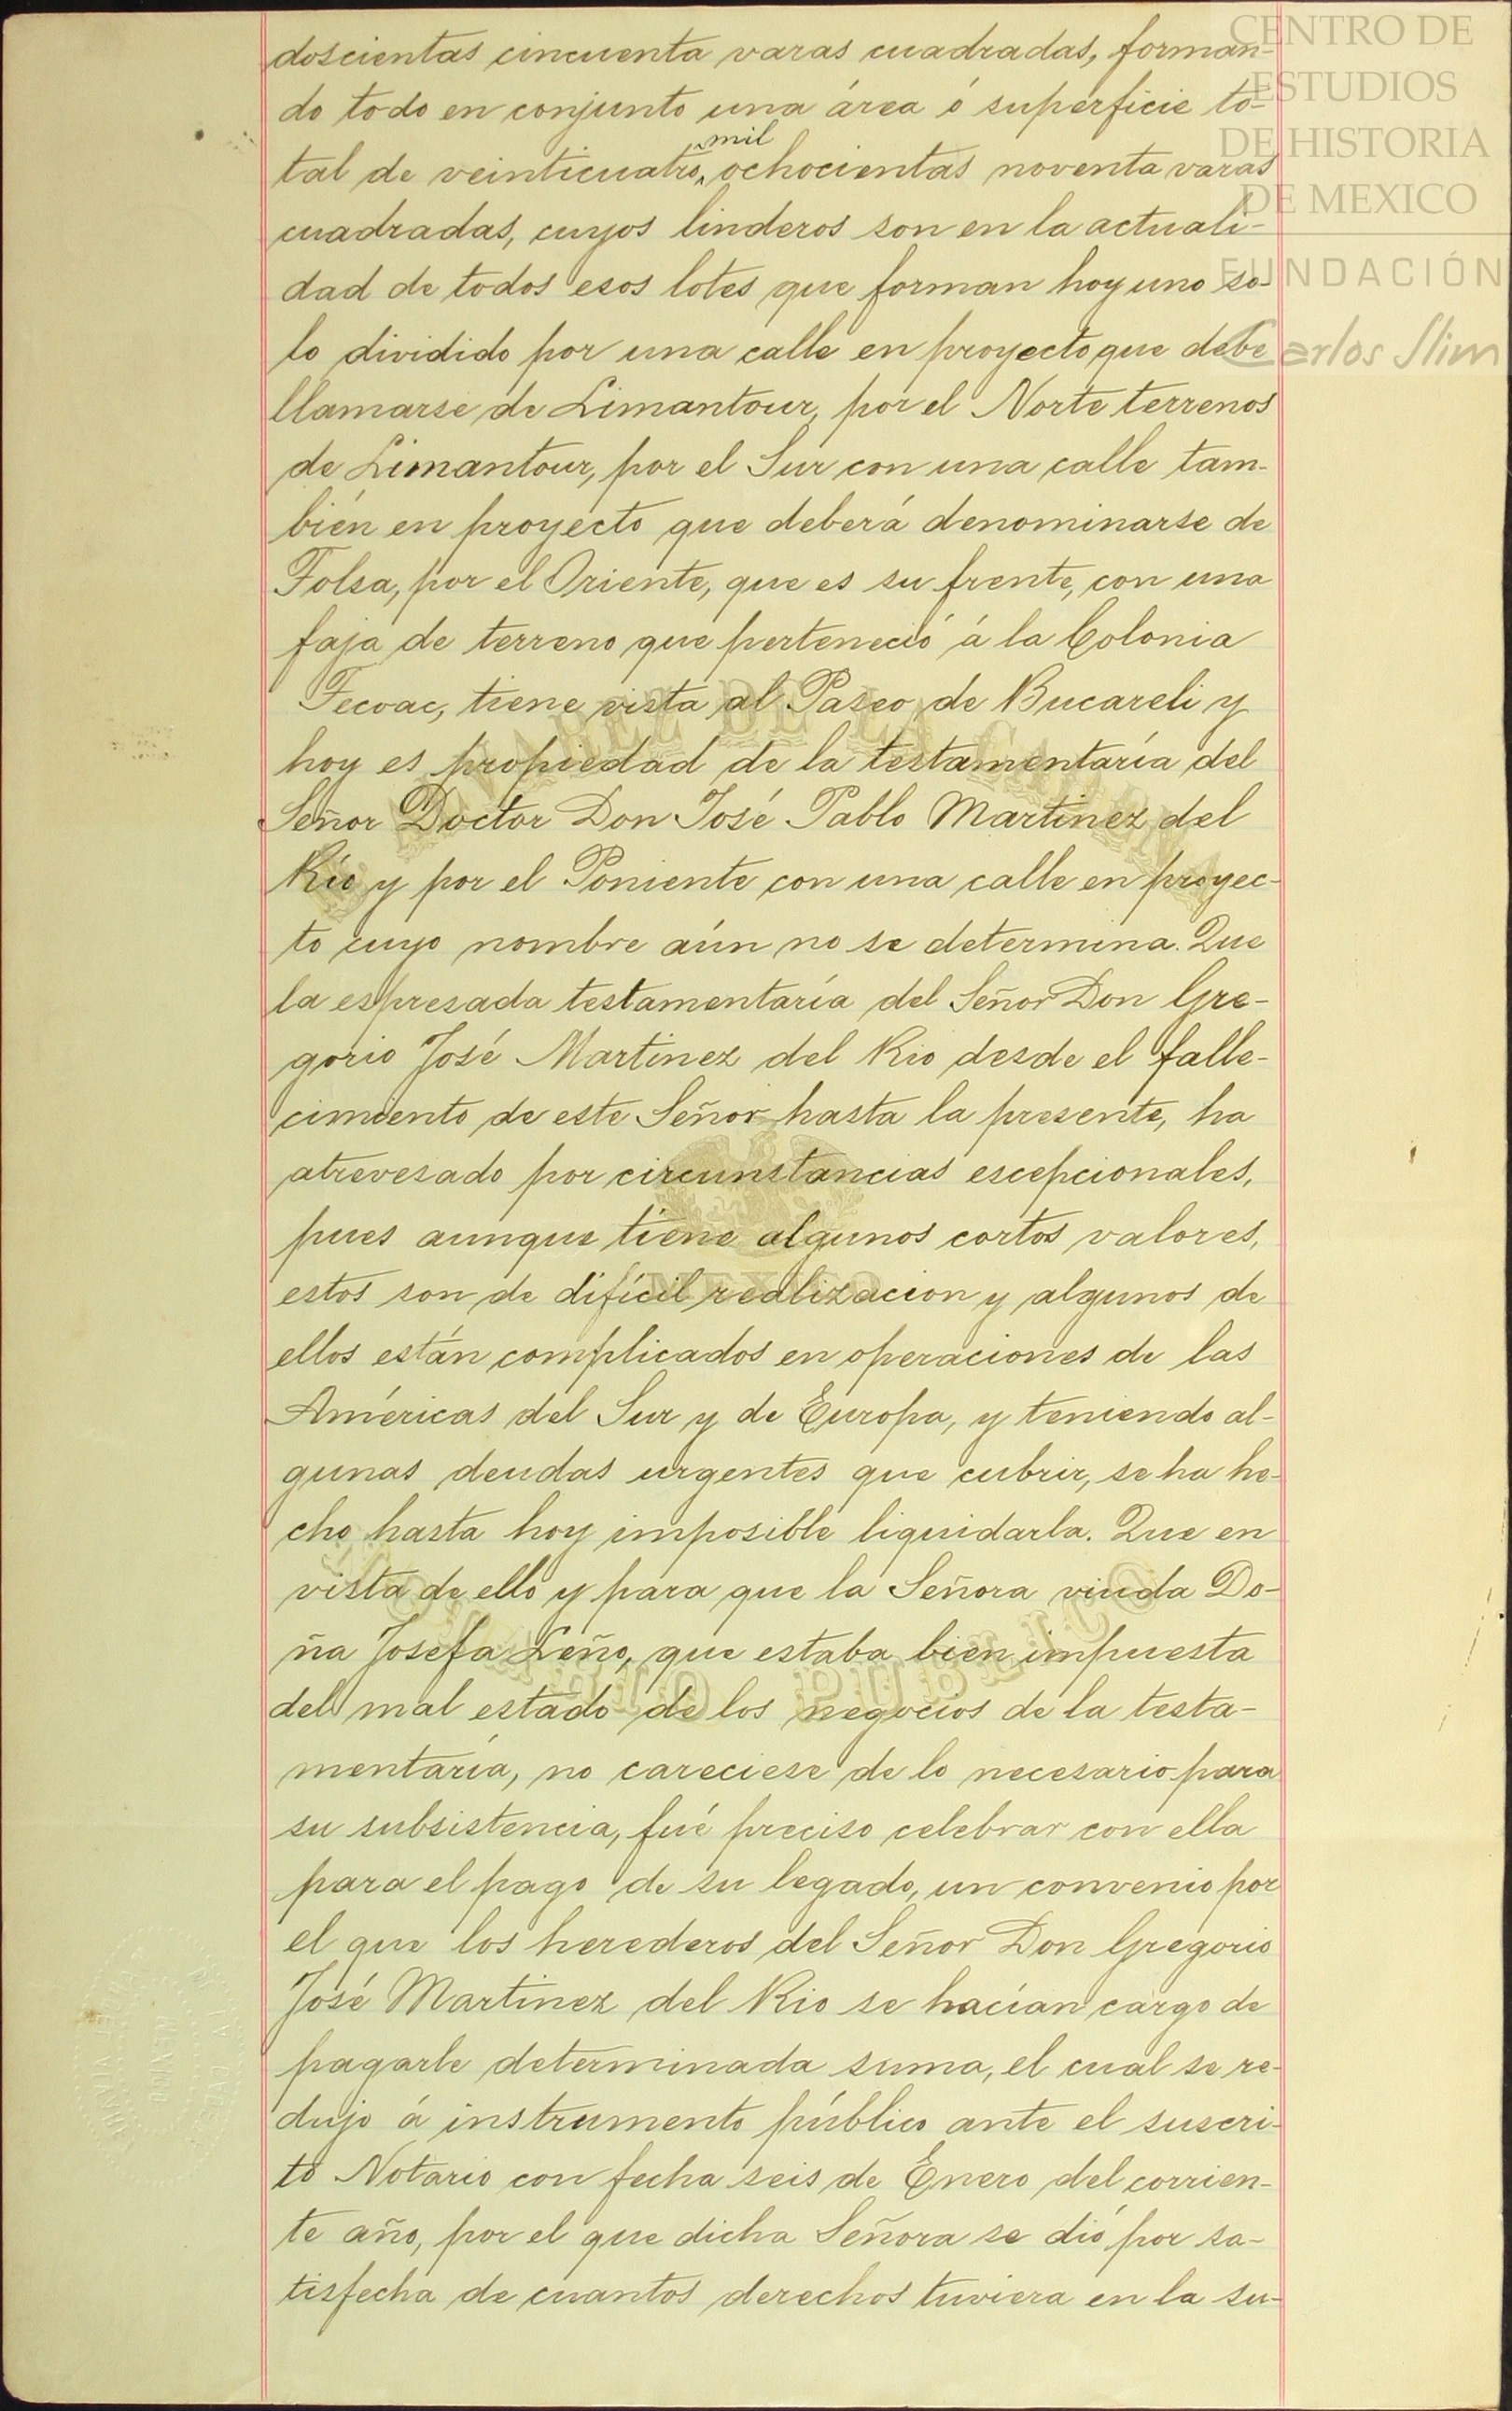 doscientas cincuenta varas cuadradas, forman-
do todo en conjunto una área ó superficie to-
mil
tal de veinticuatro ochocientas noventa varas
cuadradas, cuyos linderos son en la actuali-
dad de todos esos lotes que forman hoy uno so-
lo dividido por una calle en proyecto que debe
llamarse de Limantour, por el Norte terrenos
de Limantour, por el Sur con una calle tam-
bién en proyecto que deberá denominarse de
Tolsa, por el Oriente, que es su frente, con una
faja de terreno que perteneció á la Colonia
Tecoac, tiene vista al Paseo de Bucareli y
hoy es propiedad de la testamentaría del
Señor Doctor Don José Pablo Martinez del
Río y por el Poniente con una calle en proyec-
to cuyo nombre aún no se determina. Que
la espresada testamentaría del Señor Don Gre-
gorio José Martinez del Rio desde el falle-
cimiento de este Señor hasta la presente, ha
atrevesado por circunstancias escepcionales,
pues aunque tiene algunos cortos valores,
estos son de difícil realizacion y algunos de
ellos están complicados en operaciones de las
Américas del Sur y de Europa, y teniendo al-
gunas deudas urgentes que cubrir, se ha he-
cho hasta hoy imposible liquidarla. Que en
vista de ello y para que la Señora viuda Do-
ña Josefa Leño, que estaba bien impuesta
del mal estado de los negocios de la testa-
mentaría, no careciese de lo necesario para
su subsistencia, fué preciso celebrar con ella
para el pago de su legado, un convenio por
el que los herederos del Señor Don Gregorio
José Martinez del Rio se hacían cargo de
pagarle determinada suma, el cual se re-
dujo á instrumento público ante el suscri-
to Notario con fecha seis de Enero del corrien-
te año, por el que dicha Señora se dió por sa-
tisfecha de cuantos derechos tuviera en la su-
CENTRO DE
ESTUDIOS
DE HISTORIA
DE MEXICO
FUNDACIÓN
Carlos Slim
MEXICO
NOTARIO PUBLICO